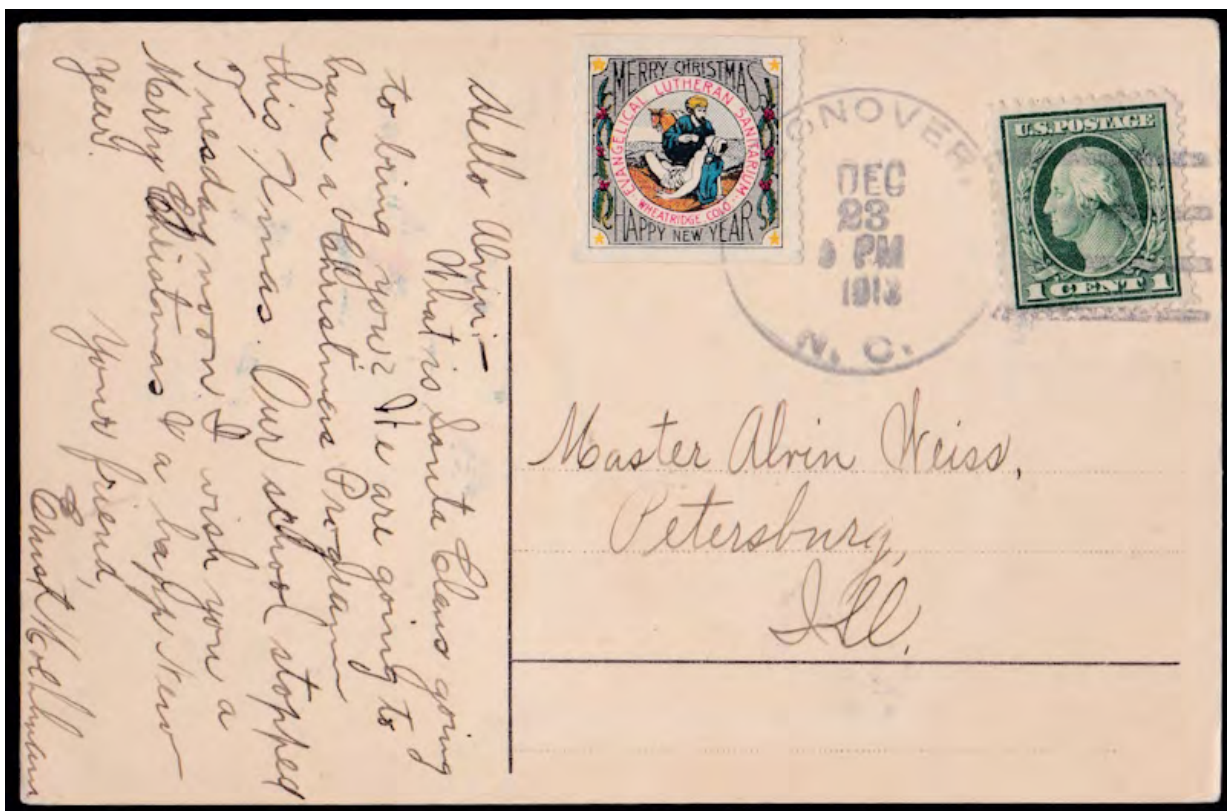 Hello Alvin:—
What is Santa Claus going
to bring you? We are going to
have a Christmas Program
this Xmas. Our school stopped
Tuesday noon. I wish you a
Merry Christmas & a happy New
year.
Your friend,
Ernst
MERRY CHRISTMAS
EVANGELICAL LUTHERAN SANITARIUM
WHEATRIDGE, COLO.
HAPPY NEW YEAR
CONOVER,
DEC
23
PM
1913
N. C.
U.S. POSTAGE
1 CENT 1
Master Alvin Weiss,
Petersburg,
Ill.